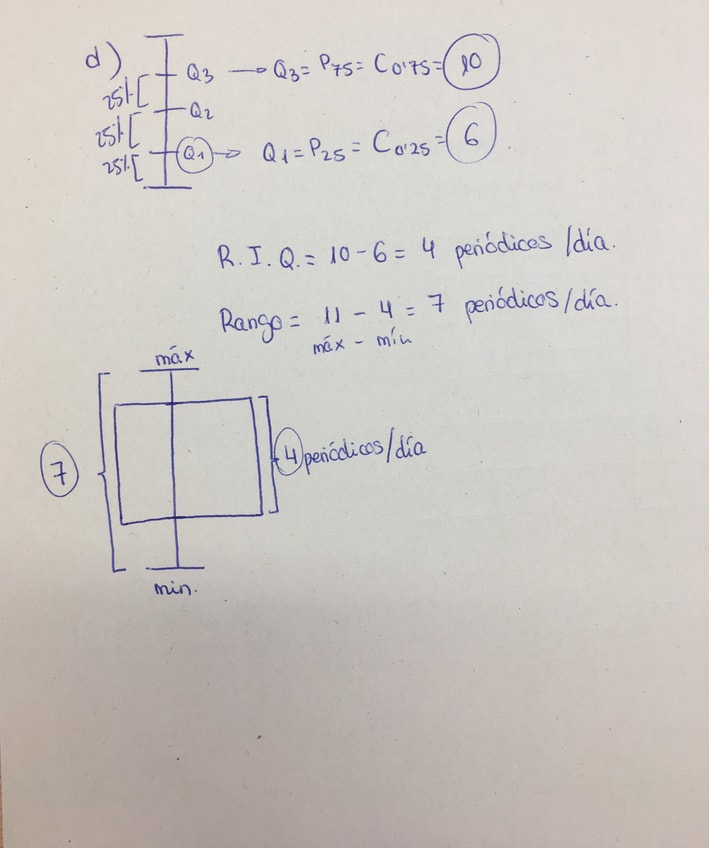 d)
Q3 → Q3 = P75 = C0'75 = 10
25%
Q2
25%
Q1 → Q1 = P25 = C0'25 = 6
25%
R. I. Q. = 10 - 6 = 4 periódicos /día.
Rango = 11 - 4 = 7 periódicos/día.
máx - mín
máx
7
4 periódicos/día
min.